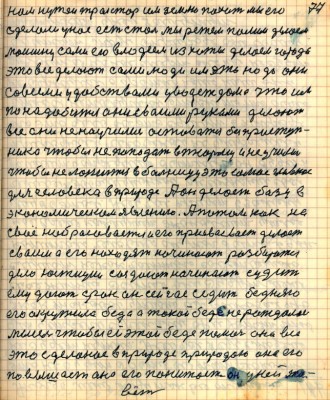 77
нам нужен трактор им землю пахот мы его
сделали у нас есть стол мы режем пилим делаем
машину сами ею владеем из хаты делаем города
это все делают сами люди им жить надо они
совсеми удобствами уводят дома это им
понадобится они своими руками делают
все они не научили оставатся без приступ-
ника чтобы не попадать в тюрьму и не учили
чтобы не ложится в больницу это самое главное
для человека в природе А он делает базу в
экономическом явлению. А потом как на
своё набрасывается и его присваевает делает
своим а его находят начинают разбирать
дело юстиции создают начинают судить
ему дают срок он сейчас седит бедняга
его окружила беда а такой беде не рождалося
мысли чтобы ей этой беде помоч она все
это сделаное в природе природою она его
повышает она его понижает он у ней жи-
вёт